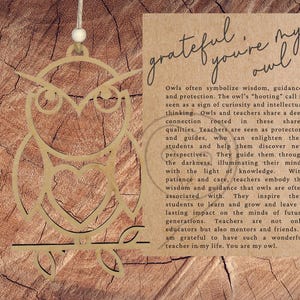 grateful,
you're my
owl
Owls often symbolize wisdom, guidance
and protection. The owl's "hooting" call
seen as a sign of curiosity and intellectual
thinking. Owls and teachers share a deep
connection rooted in these shared
qualities. Teachers are seen as protectors
and guides, who can enlighten the
students and help them discover new
perspectives. They guide them through
The darkness, illuminating their minds
with the light of knowledge. With
patience and care, teachers embody the
wisdom and guidance that owls are often
associated with. They inspire their
students to learn and grow and leave a
lasting impact on the minds of future
generations. Teachers are not only
educators but also mentors and friends. I
am grateful to have such a wonderful
teacher in my life. You are my owl.